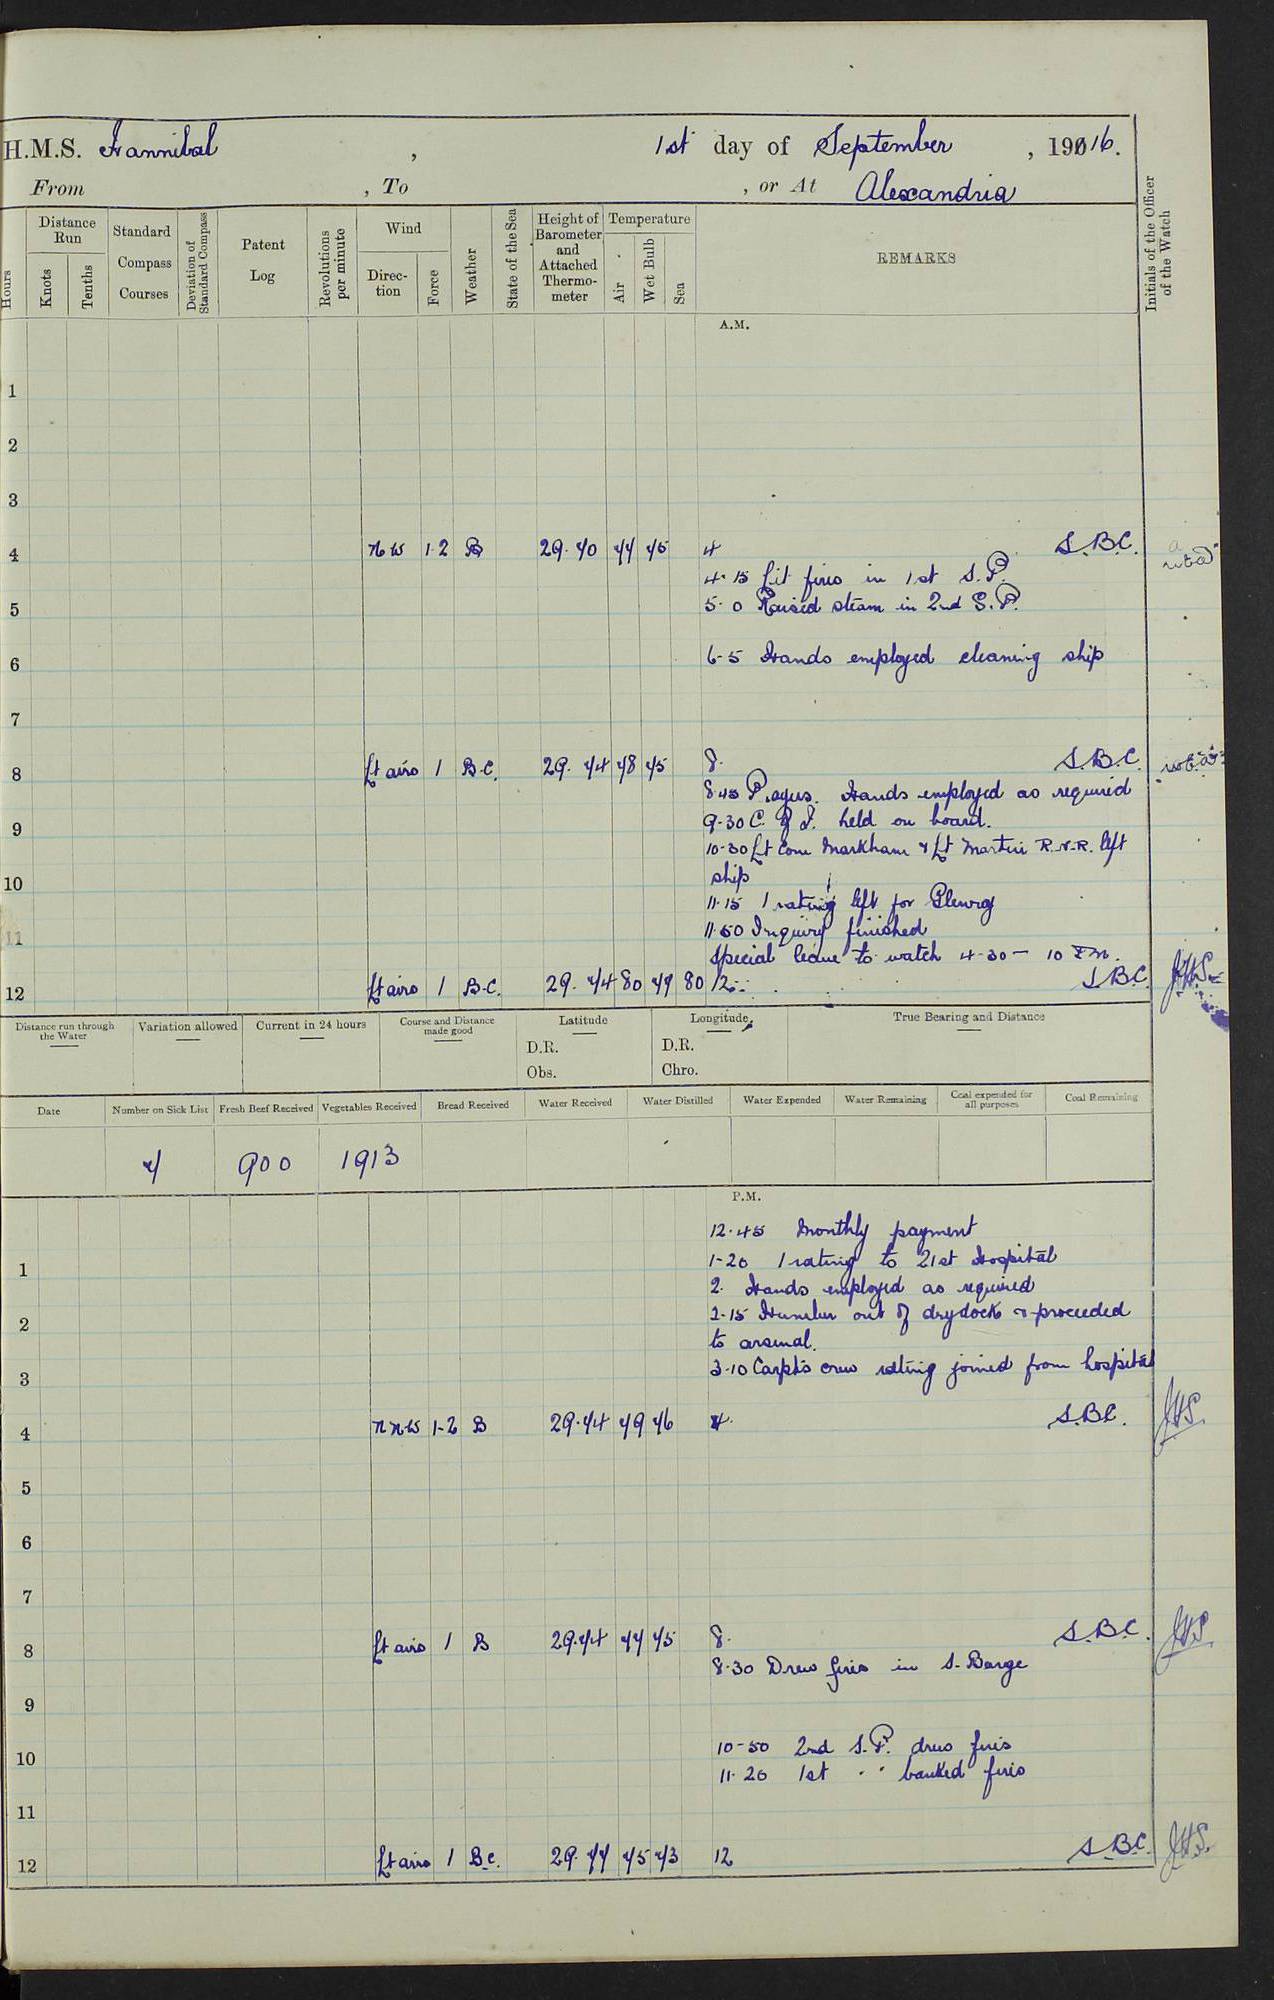 H.M.S. Hannibal , 1st day of September , 19016.
From , To , or At Alexandria
Hours
Distance Run
Knots
Tenths
Standard Compass Courses
Deviation of Standard Compass
Patent Log
Revolutions per minute
Wind
Direction
Force
Weather
State of the Sea
Height of Barometer and Attached Thermometer
Temperature
Air
Wet Bulb
Sea
REMARKS
Initials of the Officer of the Watch
A.M.
1
2
3
4 NW 1-2 B 29.70 77 75 4 S.B.C.
4.15 Lit fires in 1st S.P.
5 5.0 Raised steam in 2nd S.P.
6 6-5 Hands employed cleaning ship
7
8 Lt airs 1 B.C. 29.74 78 75 8. S.B.C.
8.45 Prayers. Hands employed as required
9 9-30 C. of I. held on board.
10-30 Lt Com Markham & Lt Martin R.N.R. left
10 ship
11.15 1 rating left for
11 11.50 Inquiry finished
Special leave to watch 4-30 - 10 P.M.
12 Lt airs 1 B.C. 29.74 80 79 80 12 S.B.C. JHS
Distance run through the Water
Variation allowed
Current in 24 hours
Course and Distance made good
Latitude
D.R.
Obs.
Longitude
D.R.
Chro.
True Bearing and Distance
Date
Number on Sick List
Fresh Beef Received
Vegetables Received
Bread Received
Water Received
Water Distilled
Water Expended
Water Remaining
Coal expended for all purposes
Coal Remaining
7 900 1913
P.M.
12.45 Monthly payment
1 1-20 1 rating to 21st Hospital
2. Hands employed as required
2 2-15 Humber out of drydock & proceeded
to arsenal.
3 3-10 Carpt's crew rating joined from hospital
4 NNW 1-2 B 29.74 79 76 4. S.B.C. JHS
5
6
7
8 Lt airs 1 B 29.74 77 75 8. S.B.C. JHS
8.30 Drew fires in S. Barge
9
10 10-50 2nd S.P. drew fires
11.20 1st " " banked fires
11
12 Lt airs 1 B.C. 29.77 75 73 12 S.B.C. JHS